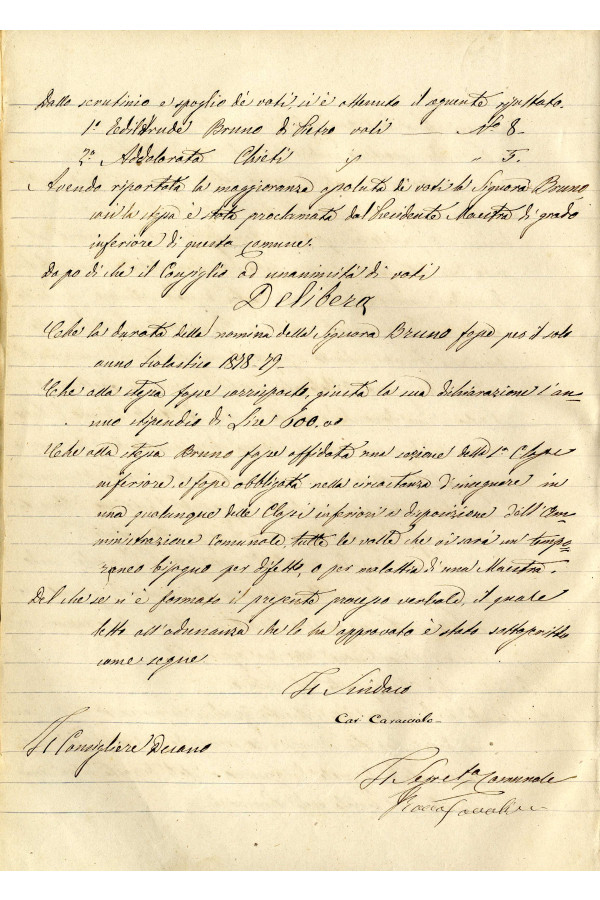 Dallo scrutinio e spoglio de' voti, si è ottenuto il seguente risultato.
1a Ediltrude Bruno di Pietro voti — No 8.
2a Addolorata Chieti " " 5.
Avendo riportata la maggioranza assoluta di voti la Signora Bruno,
così la stessa è stata proclamata dal Presidente Maestra di grado
inferiore di questo Comune.
Dopo di che il Consiglio ad unanimità di voti
Delibera
Che la durata della nomina della Signora Bruno fosse per il solo
anno scolastico 1878-79.
Che alla stessa fosse corrisposto, giusta la sua dichiarazione l'an-
nuo stipendio di Lire 600.00
Che alla stessa Bruno fosse affidata una sezione della 1a Classe
inferiore, e fosse obbligata nella circostanza d'insegnare in
una qualunque delle Classi inferiori a disposizione dell'Am-
ministrazione Comunale, tutte le volte che vi sarà un tempo-
raneo bisogno per difetto, o per malattia d'una Maestra.
Del che se n'è formato il presente processo verbale, il quale
letto all'adunanza che lo ha approvato è stato sottoscritto
come segue
Il Sindaco
Cav Caracciolo
Il Consigliere Decano
Il Segretro Comunale
Rocco